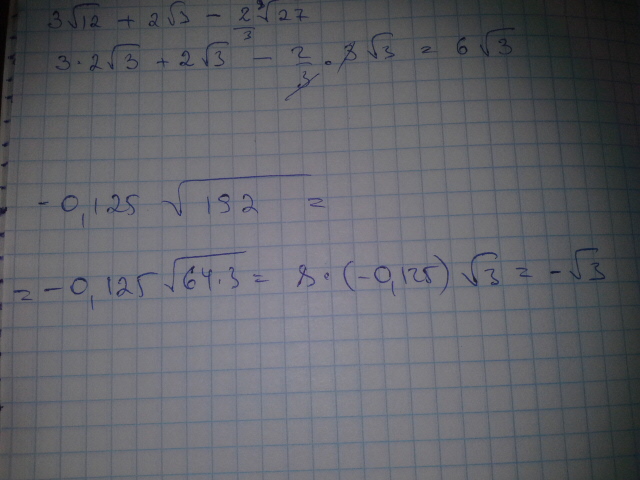 3√12 + 2√3 - 2/3 √27
3·2√3 + 2√3 - 2/3 · 3√3 = 6√3
-0,125 √192 =
= -0,125 √64·3 = 8·(-0,125) √3 = -√3